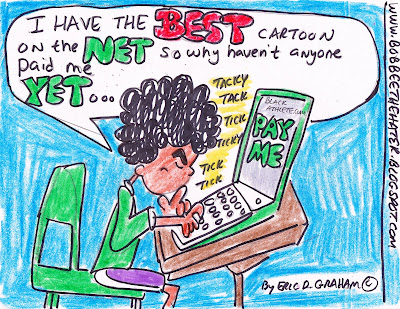 I HAVE THE BEST CARTOON
ON the NET so why haven't anyone
paid me
YET...
TICKY
TACK
TICK
TICKY
TICK
TICK
BLACK
ATHLETE.COM
PAY
ME
By ERIC D. GRAHAM ©
www.BOBBEETHEHATER.BLOGSPOT.COM